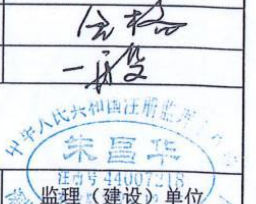 合格
一般
中华人民共和国注册监理工程师
朱昌华
注册号 44007218
监理（建设）单位